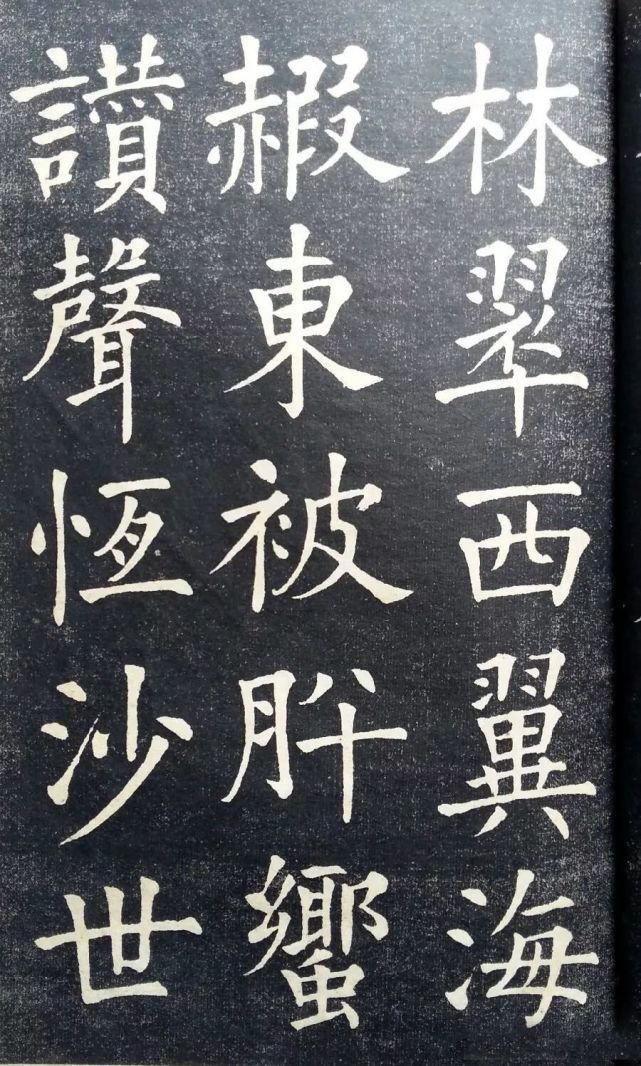 林翠西翼海
赮東被肸蠁
讃聲恆沙世